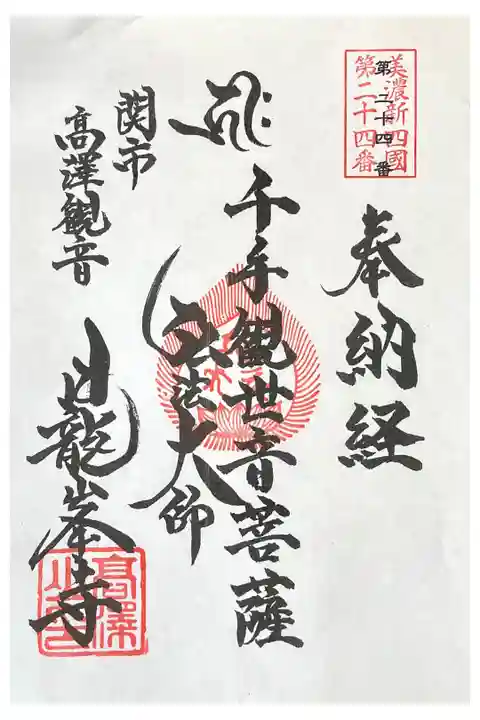 美濃新四國
第二十四番
第二十四番
奉納経
千手觀世音菩薩
弘法大師
関市
高澤觀音
日龍峯寺